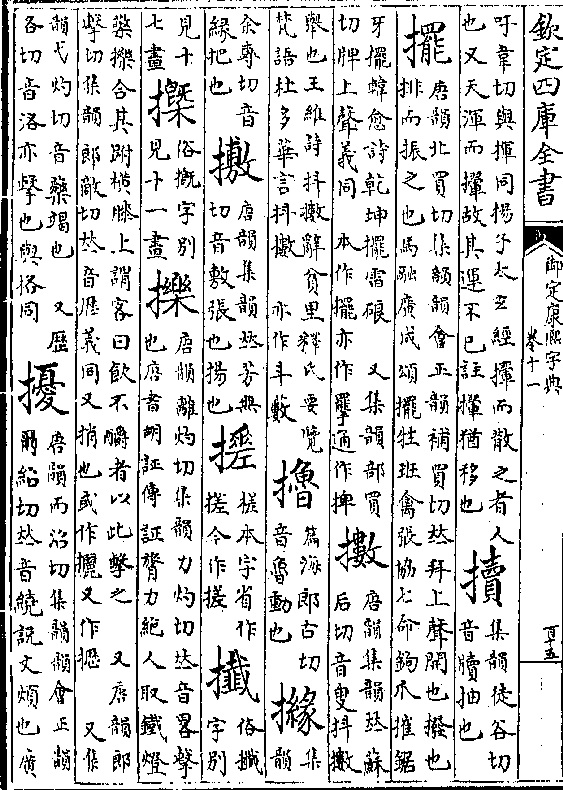 欽定四庫全書
御定康熙字典
卷十一
吁韋切與揮同揚子太玄經㩓而散之者人
也又天渾而㩓故其運不已註㩓猶移也
㩠
集韻徒谷切
音牘抽也
擺
唐韻北買切集韻韻會正韻補買切𠀤拜上聲開也撥也
排而振之也馬融廣成頌擺牲班禽張協七命鉤爪摧鋸
牙擺韓愈詩乾坤擺雷硠 又集韻部買
切牌上聲義同 本作擺亦作㩯通作捭
擻
唐韻集韻𠀤蘇
后切音叟抖擻
舉也王維詩抖擻辭貧里釋氏要覽
梵語杜多華言抖擻 亦作斗藪
擼
篇海郎古切
音魯動也
㩜
集韻
余專切音
緣把也
㩤
唐韻集韻𠀤芳無
切音敷張也揚也
㩫
搓本字省作
搓今作搓
㩥
俗攕
字別
見十
七畫
㩢
俗摡字別
見十一畫
擽
唐韻離灼切集韻力灼切𠀤音畧擊
也唐書胡証傳証膂力絕人取鐵燈
檠擽合其跗橫膝上謂客曰飲不釂者以此擊之 又唐韻郎
擊切集韻郎敵切𠀤音歷義同又捎也或作攦又作攊 又集
韻弋灼切音藥竭也 又歷
各切音洛亦擊也與挌同
擾
唐韻而沼切集韻韻會正韻
爾紹切𠀤音繞說文煩也廣